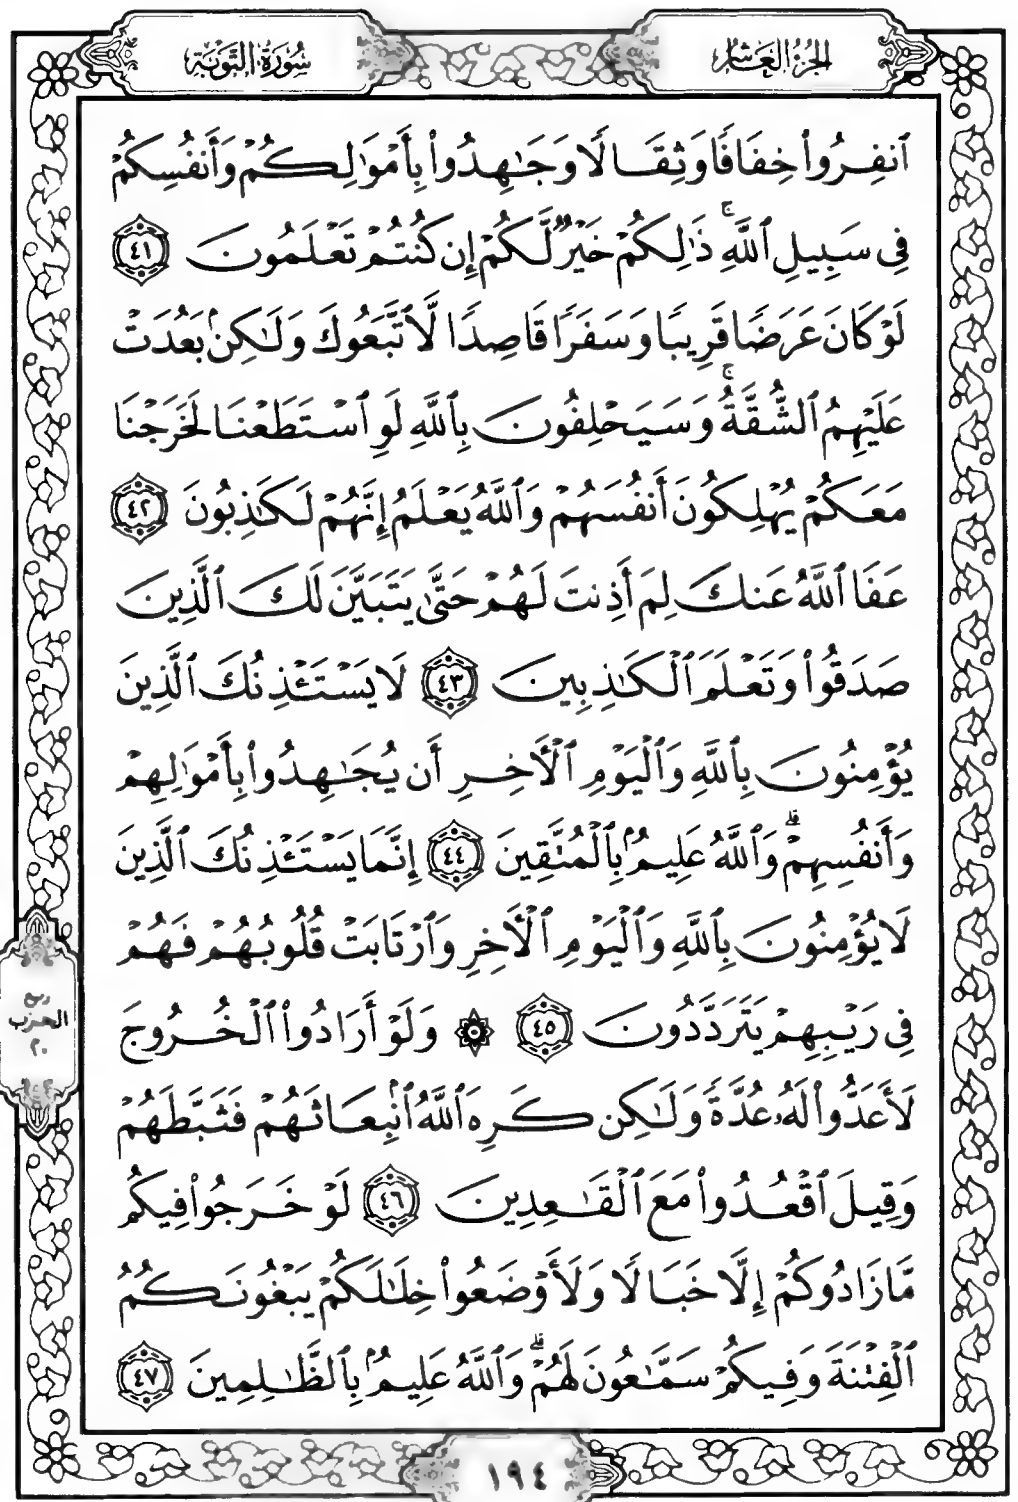 الجزء العاشر
سورة التوبة
ٱنفِرُوا۟ خِفَافًا وَثِقَالًا وَجَـٰهِدُوا۟ بِأَمْوَٰلِكُمْ وَأَنفُسِكُمْ
فِى سَبِيلِ ٱللَّهِ ۚ ذَٰلِكُمْ خَيْرٌ لَّكُمْ إِن كُنتُمْ تَعْلَمُونَ ٤١
لَوْ كَانَ عَرَضًا قَرِيبًا وَسَفَرًا قَاصِدًا لَّٱتَّبَعُوكَ وَلَـٰكِنۢ بَعُدَتْ
عَلَيْهِمُ ٱلشُّقَّةُ ۚ وَسَيَحْلِفُونَ بِٱللَّهِ لَوِ ٱسْتَطَعْنَا لَخَرَجْنَا
مَعَكُمْ يُهْلِكُونَ أَنفُسَهُمْ وَٱللَّهُ يَعْلَمُ إِنَّهُمْ لَكَـٰذِبُونَ ٤٢
عَفَا ٱللَّهُ عَنكَ لِمَ أَذِنتَ لَهُمْ حَتَّىٰ يَتَبَيَّنَ لَكَ ٱلَّذِينَ
صَدَقُوا۟ وَتَعْلَمَ ٱلْكَـٰذِبِينَ ٤٣ لَا يَسْتَـْٔذِنُكَ ٱلَّذِينَ
يُؤْمِنُونَ بِٱللَّهِ وَٱلْيَوْمِ ٱلْـَٔاخِرِ أَن يُجَـٰهِدُوا۟ بِأَمْوَٰلِهِمْ
وَأَنفُسِهِمْ ۗ وَٱللَّهُ عَلِيمٌۢ بِٱلْمُتَّقِينَ ٤٤ إِنَّمَا يَسْتَـْٔذِنُكَ ٱلَّذِينَ
لَا يُؤْمِنُونَ بِٱللَّهِ وَٱلْيَوْمِ ٱلْـَٔاخِرِ وَٱرْتَابَتْ قُلُوبُهُمْ فَهُمْ
فِى رَيْبِهِمْ يَتَرَدَّدُونَ ٤٥ ۞ وَلَوْ أَرَادُوا۟ ٱلْخُرُوجَ
لَأَعَدُّوا۟ لَهُۥ عُدَّةً وَلَـٰكِن كَرِهَ ٱللَّهُ ٱنۢبِعَاثَهُمْ فَثَبَّطَهُمْ
وَقِيلَ ٱقْعُدُوا۟ مَعَ ٱلْقَـٰعِدِينَ ٤٦ لَوْ خَرَجُوا۟ فِيكُم
مَّا زَادُوكُمْ إِلَّا خَبَالًا وَلَأَوْضَعُوا۟ خِلَـٰلَكُمْ يَبْغُونَكُمُ
ٱلْفِتْنَةَ وَفِيكُمْ سَمَّـٰعُونَ لَهُمْ ۗ وَٱللَّهُ عَلِيمٌۢ بِٱلظَّـٰلِمِينَ ٤٧
ربع
الحزب
٢٠
١٩٤